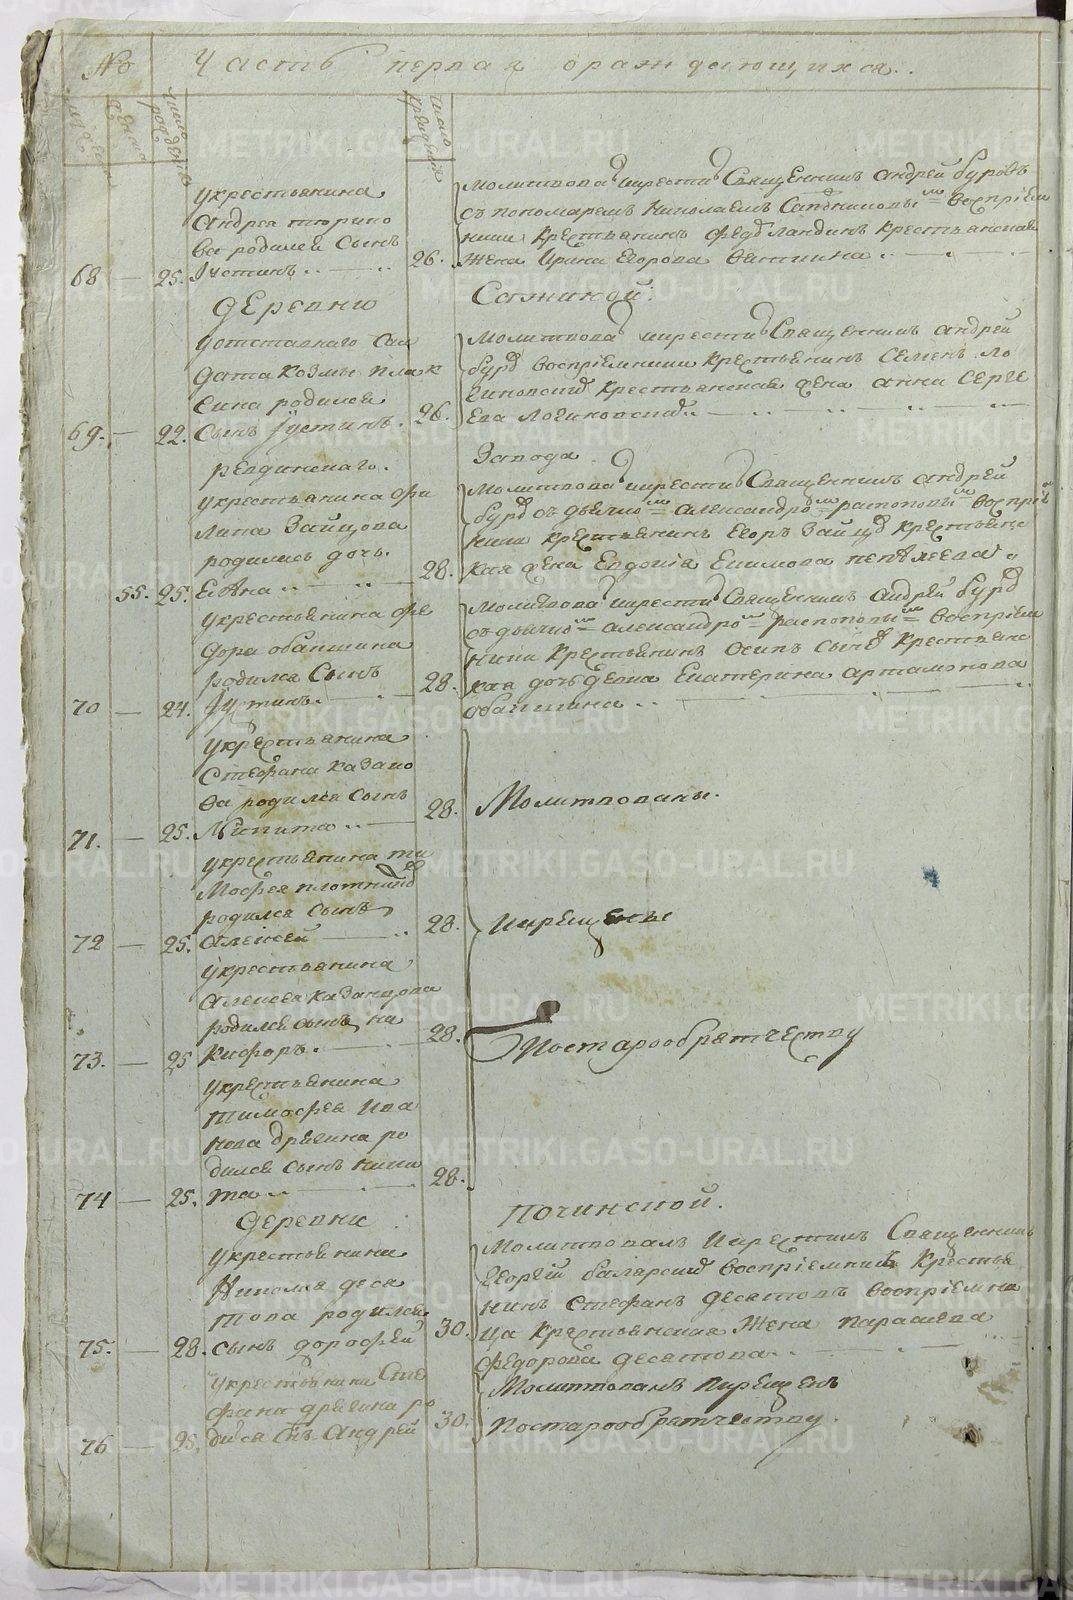 № Часть первая ораждающихся..
мужеска
женска
число рождения
число крещения
укрестьянина
Андрея тюрико
ва родился Сынъ
68 — 25. Іустинъ
26.
молитвова икрести Священникъ андрей буровъ
съ пономаремъ Николаемъ воспріем
ники крестьянинъ крестьянская
Жена Ирина Егорова
Деревни
Сажиной:
уотставного Сал
дата Козмы плак
сина родился
69. — 22. Сынъ Іустинъ.
26.
Молитвова икрести Священникъ андрей
буро воспріемники крестьянинъ Семенъ ло
гиновских крестьянская жена анна Серге
ева логиновских
ревдинскаго.
Завода
укрестьянина фи
липа Зайцова
родилась дочь.
55. 25. Елена
28.
Молитвова икрести Священникъ андрей
буро съ дьячко= александро= распоповы= воспріе
ники крестьянинъ Егоръ Зайцо крестьянс
кая жена Евдокія Екимова пепелева
укрестьянина фе
дора обакшина
родился Сынъ
70 — 24. Іустинъ.
28.
Молитвова икрести Священникъ андрей буро
съ дьячко= александро= распоповы= воспріем
ники Крестьянинъ Осипъ Крестьянс
кая дочь девка Екатерина артамонова
обакшина
укрестьянина
Стефана казако
ва родился Сынъ
71. — 25. Никита
28.
Молитвованы.
укрестьянина ти
Мофея плотнико
родился сынъ
72 — 25. Алексей
28.
икрещены
укрестьянина
Алексея казанцова
родился сынъ ни
73. — 25 Кифоръ.
28.
Постарообрятчеству
укрестьянина
тимофея ива
нова дрягина ро
дился сынъ ники
74 — 25. та
28.
Деревни
починской.
укрестьянина
Николая деся
това родился
75. — 28. сынъ дорофей
30.
Молитвовалъ Икрестилъ Священникъ
Георгій воспріемники Крестья
нинъ Стефанъ десятовъ воспріемни
ца крестьянская Жена параскева
федорова десятова
укрестьянина Сте
фана дрягина ро
76 — 25. дился Снъ. Андрей
30.
Молитвованъ икрещенъ
постарообрятчеству.
METRIKI.GASO-URAL.RU